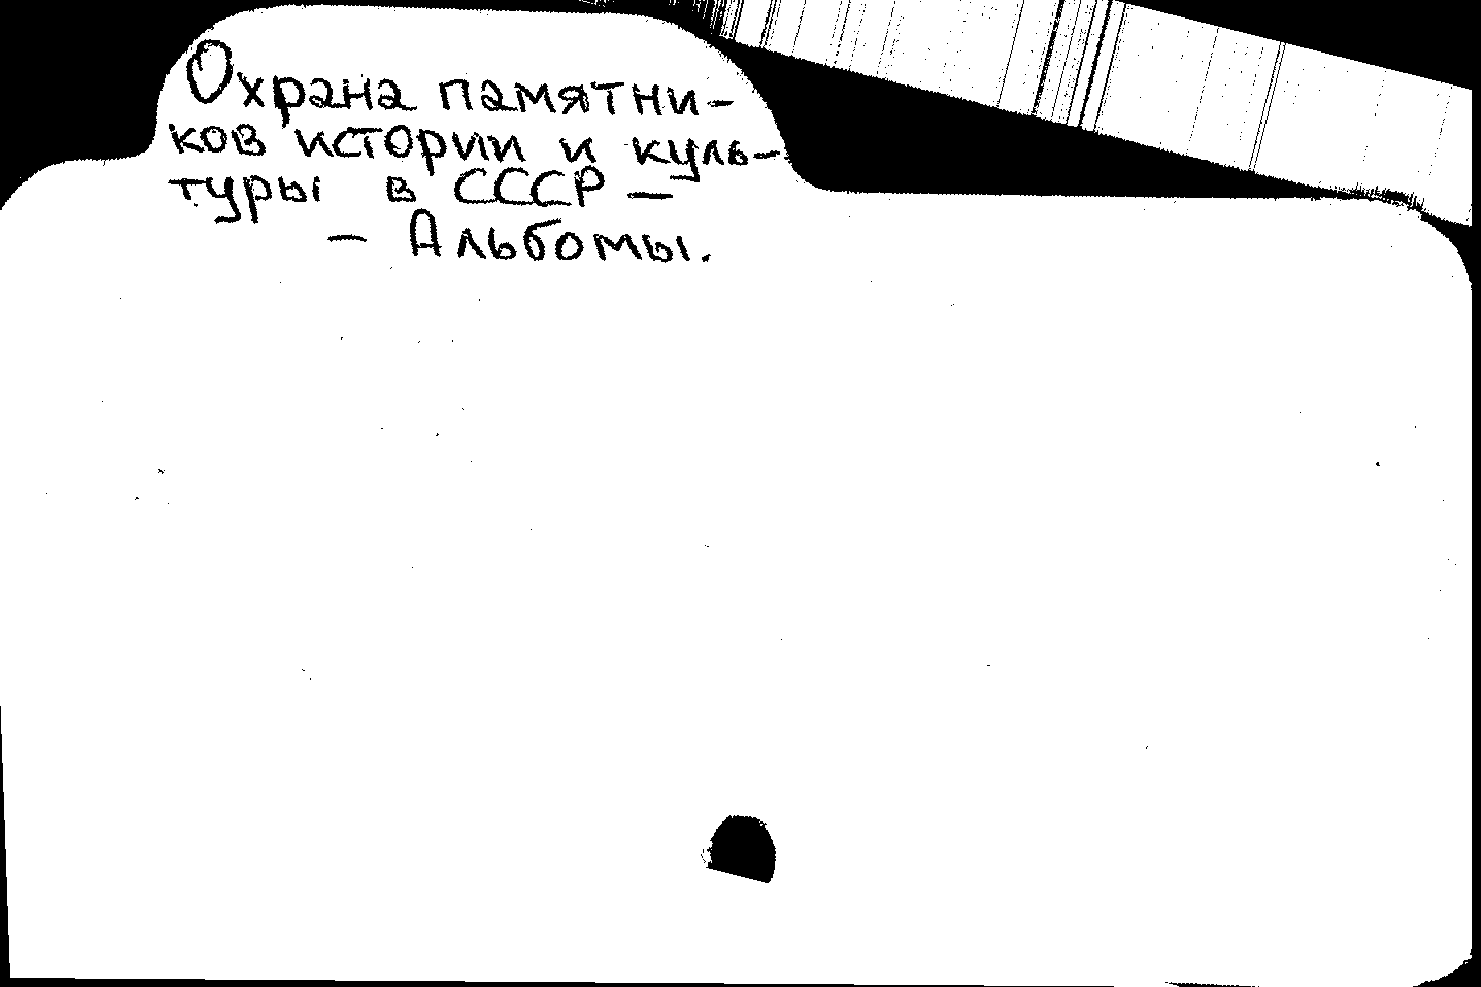 Охрана памятни-
ков истории и куль-
туры в СССР —
— Альбомы.